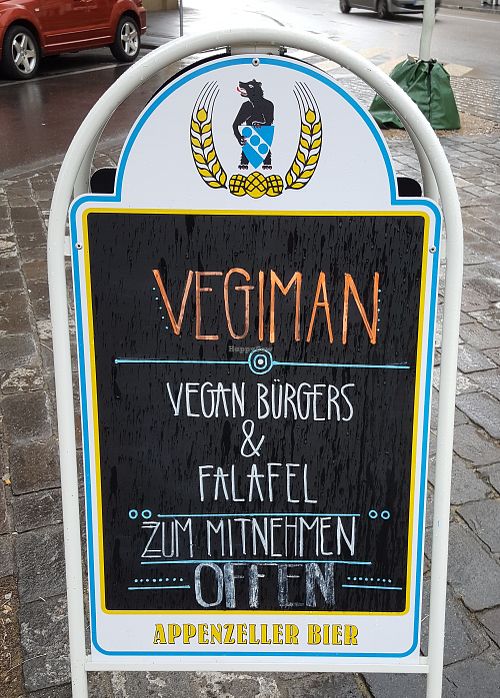 VEGIMAN
VEGAN BÜRGERS
&
FALAFEL
ZUM MITNEHMEN
OFFEN
APPENZELLER BIER